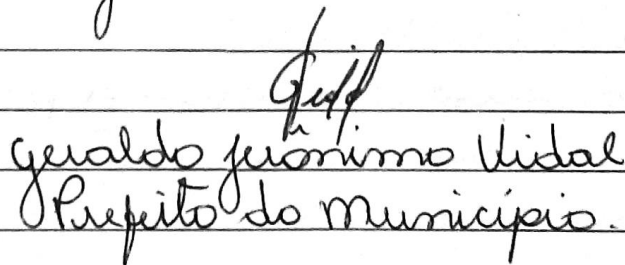 Geraldo Jerônimo Vidal
Prefeito do Município.